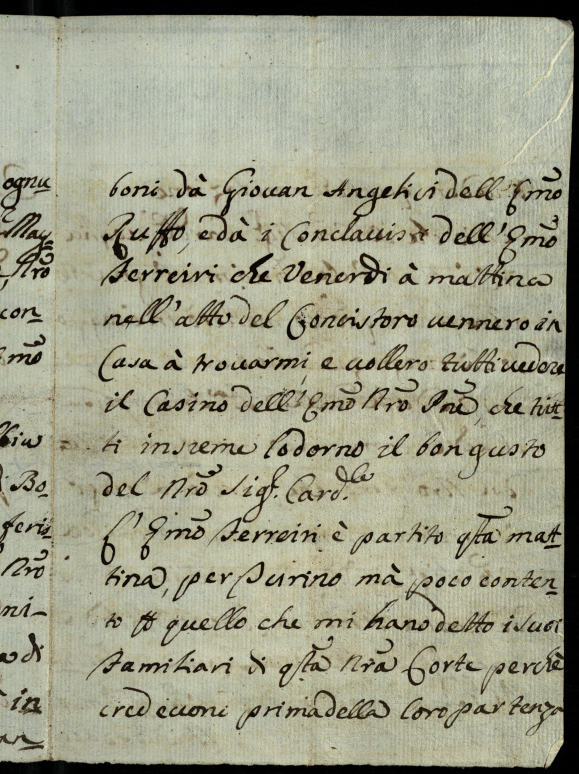 ognu
May
Nrõ
con-
Emõ
bia
di Bo-
feris
Nrõ
ni-
a di
in
an
boni dà Giovan Angelici dell' Emõ
Ruffo, e dà i Conclavisti dell' Emõ
Ferreiri che Venerdi à mattina
nell' atto del Concistoro vennero in
Casa à trovarmi e vollero tutti vedere
il Casino dell' Emõ Nrõ Pnẽ, che tut-
ti insieme lodorno il bon gusto
del Nrõ Sigr. Cardle.
L' Emõ Ferreiri è partito qstã mat-
tina, per Turino mà poco conten-
to p quello che mi hano detto i suoi
Familiari di qstã Nrã Corte perchè
credevono prima della loro partenza